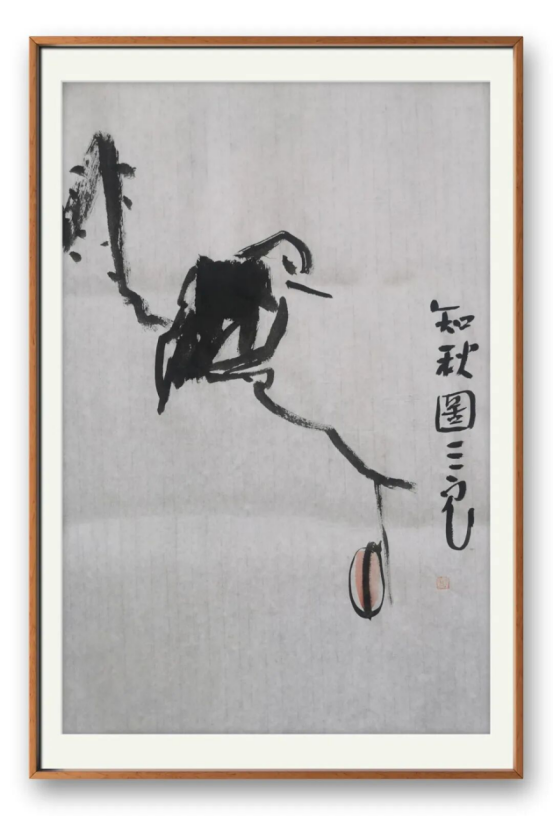 知秋圖三